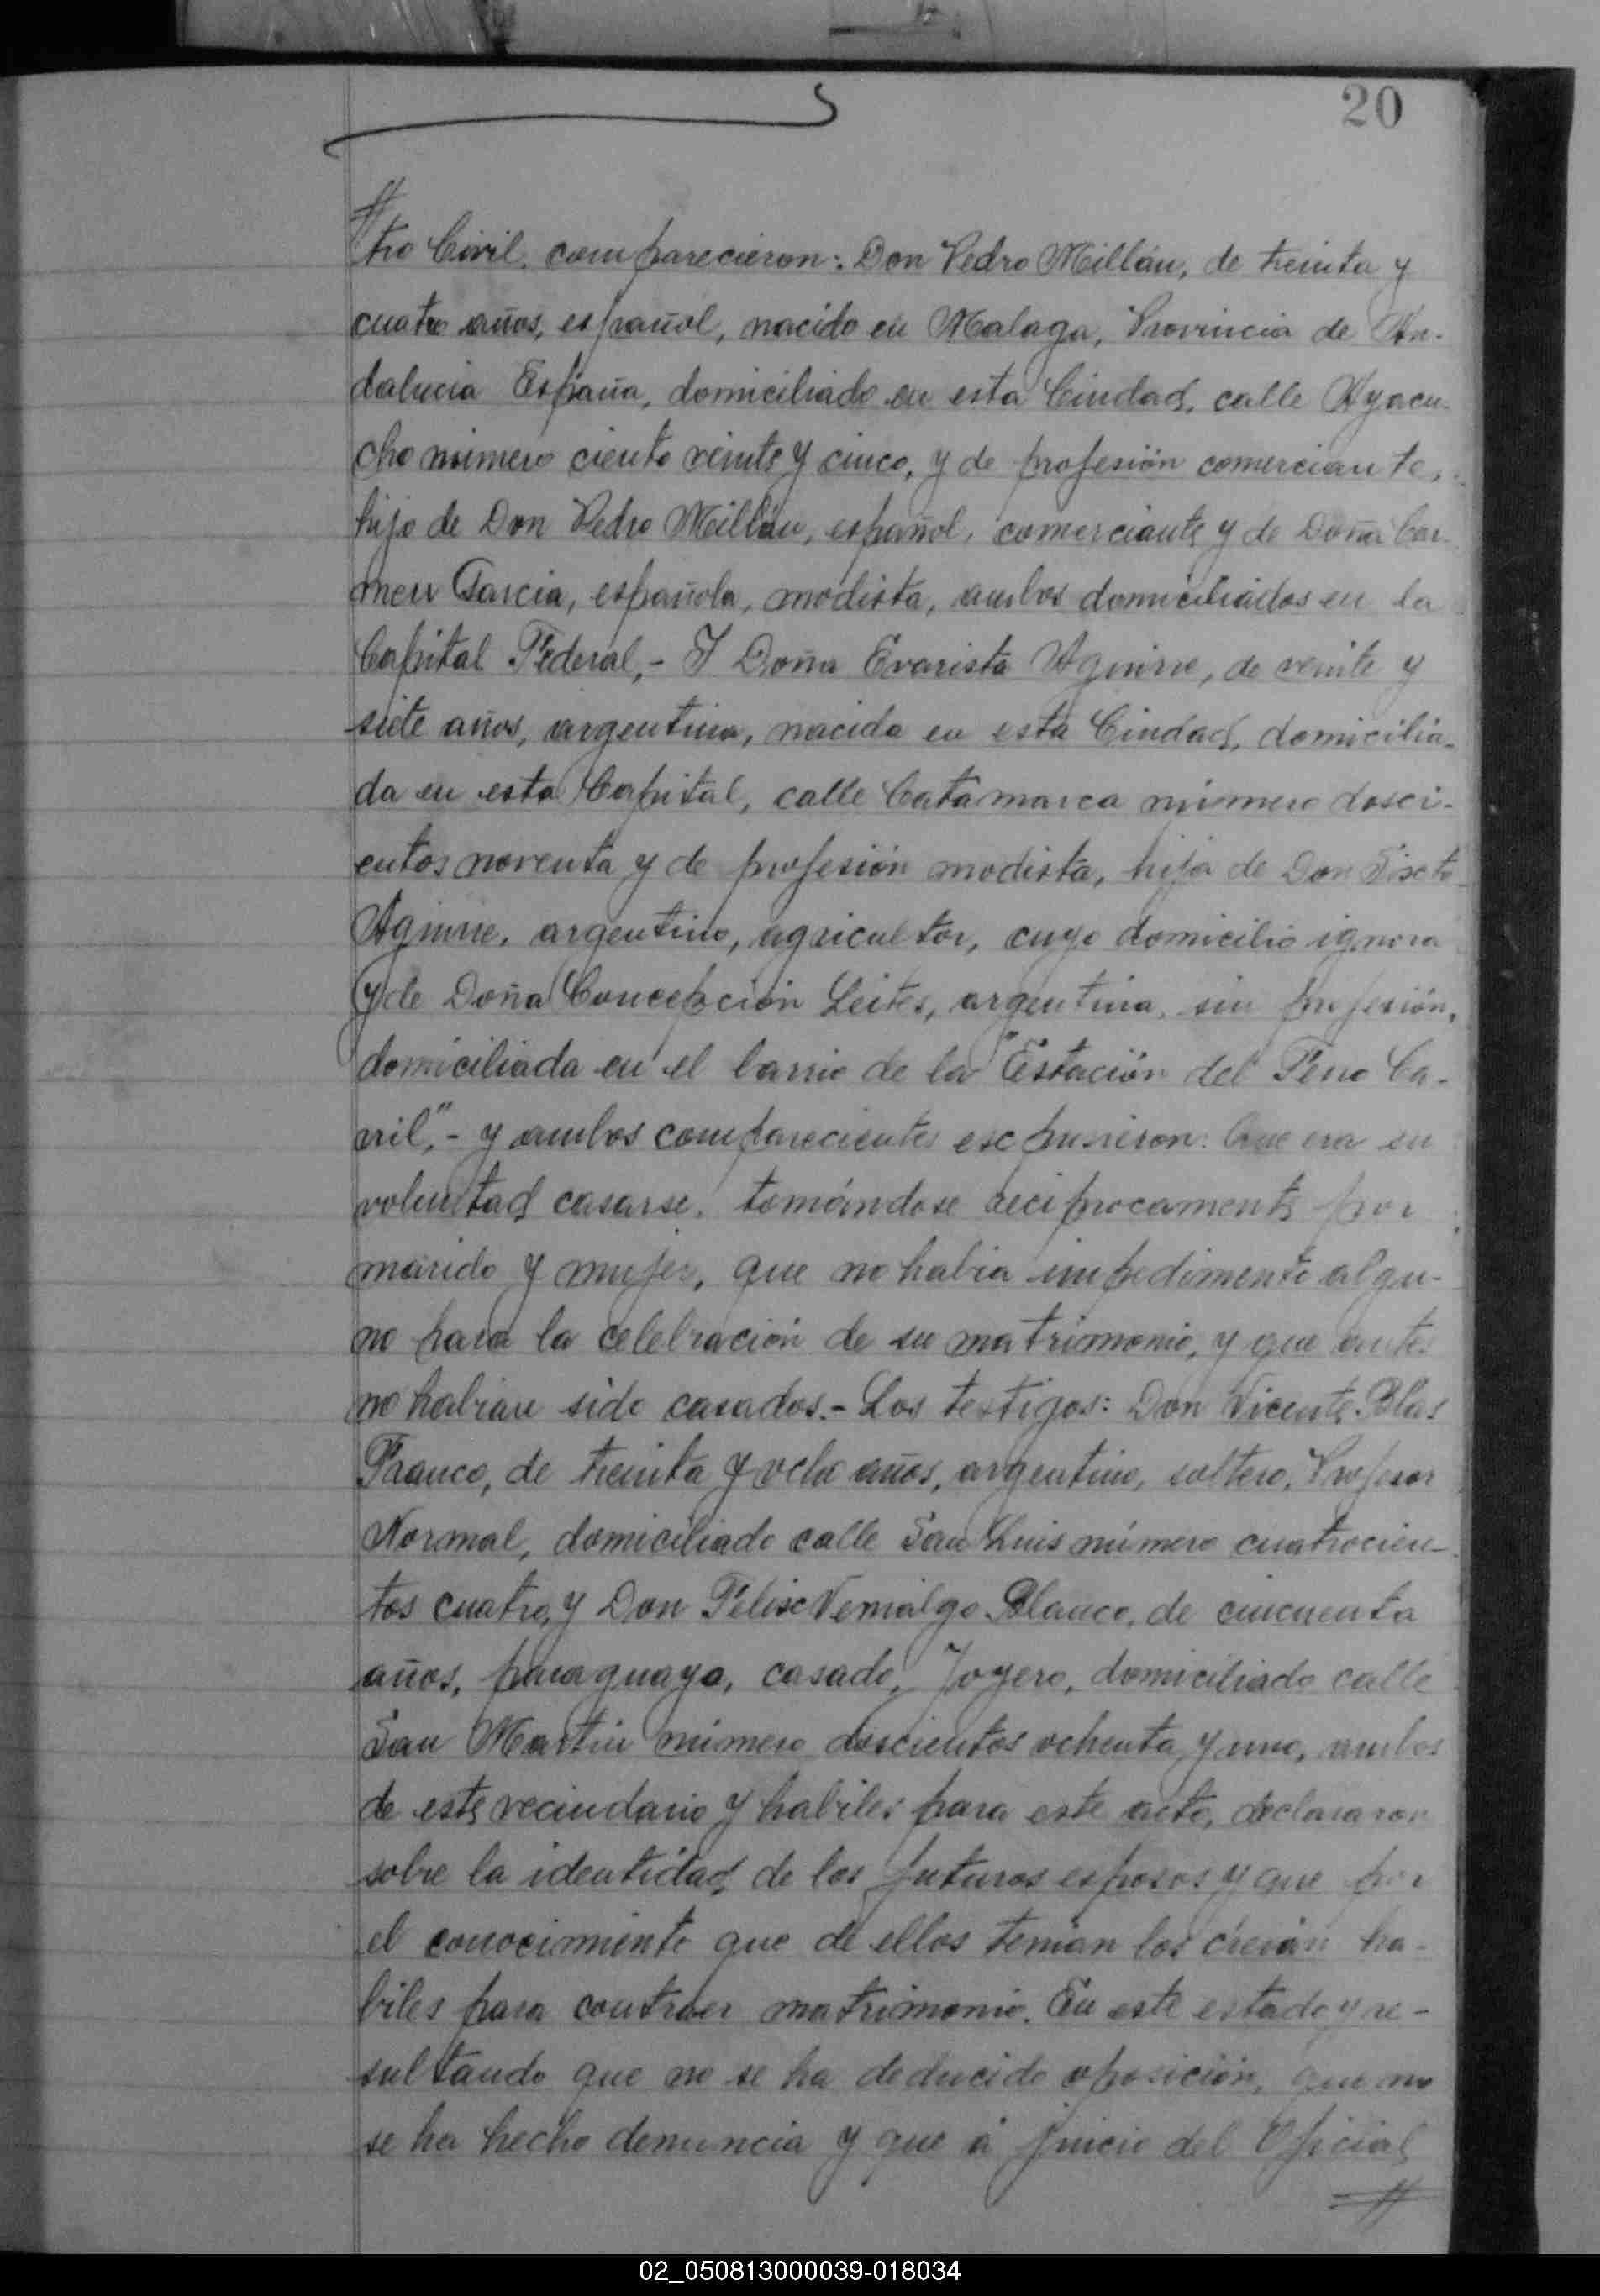 20
tro Civil, comparecieron: Don Pedro Millán, de treinta y
cuatro años, español, nacido en Malaga, Provincia de An-
dalucia España, domiciliado en esta Ciudad, calle Ayacu-
cho número ciento veinte y cinco, y de profesión comerciante,
hijo de Don Pedro Millán, español, comerciante y de Doña Car-
men Garcia, española, modista, ambos domiciliados en la
Capital Federal,- Y Doña Evarista Aguirre, de veinte y
siete años, argentina, nacida en esta Ciudad, domicilia-
da en esta Capital, calle Catamarca número dosci-
entos noventa y de profesión modista, hija de Don Sixto
Aguirre, argentino, agricultor, cuyo domicilio ignora
y de Doña Concepción Leites, argentina, sin profesión,
domiciliada en el barrio de la "Estación del Ferro Ca-
rril",- y ambos comparecientes expusieron: Que era su
voluntad casarse, tomándose reciprocamente por
marido y mujer, que no habia impedimento algu-
no para la celebración de su matrimonio, y que antes
no habian sido casados.- Los testigos: Don Vicente Blas
Franco, de treinta y ocho años, argentino, soltero, Profesor
Normal, domiciliado calle San Luis número cuatrocien-
tos cuatro, y Don Felix Vernalgo Blanco, de cincuenta
años, paraguayo, casado, Joyero, domiciliado calle
San Martin número doscientos ochenta y uno, ambos
de este vecindario y habiles para este acto, declararon
sobre la identidad de los futuros esposos y que por
el conocimiento que de ellos tenian los creian ha-
biles para contraer matrimonio. En este estado y re-
sultando que no se ha deducido oposición, que no
se ha hecho denuncia y que á juicio del Oficial
02_050813000039-018034